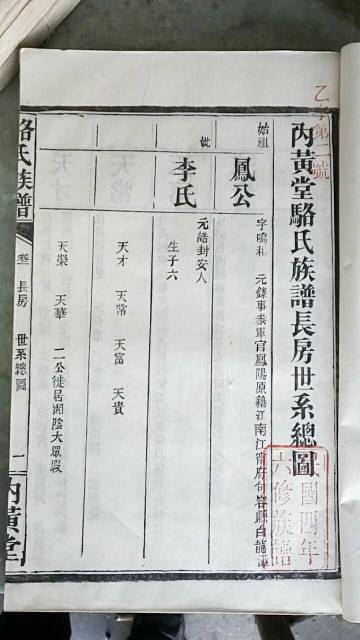 乙字第一號
內黃堂駱氏族譜長房世系總圖
民國四年
六修族譜
始祖
鳳公
字鳴和 元錄事參軍官鳳陽原籍江南江甯府句容縣白龍潭
妣
李氏
元誥封安人
生子六
天才 天常 天富 天貴
天榮 天華 二公徙居湘陰大眾嘏
駱氏族譜
卷一 長房 世系總圖
一
內黃堂